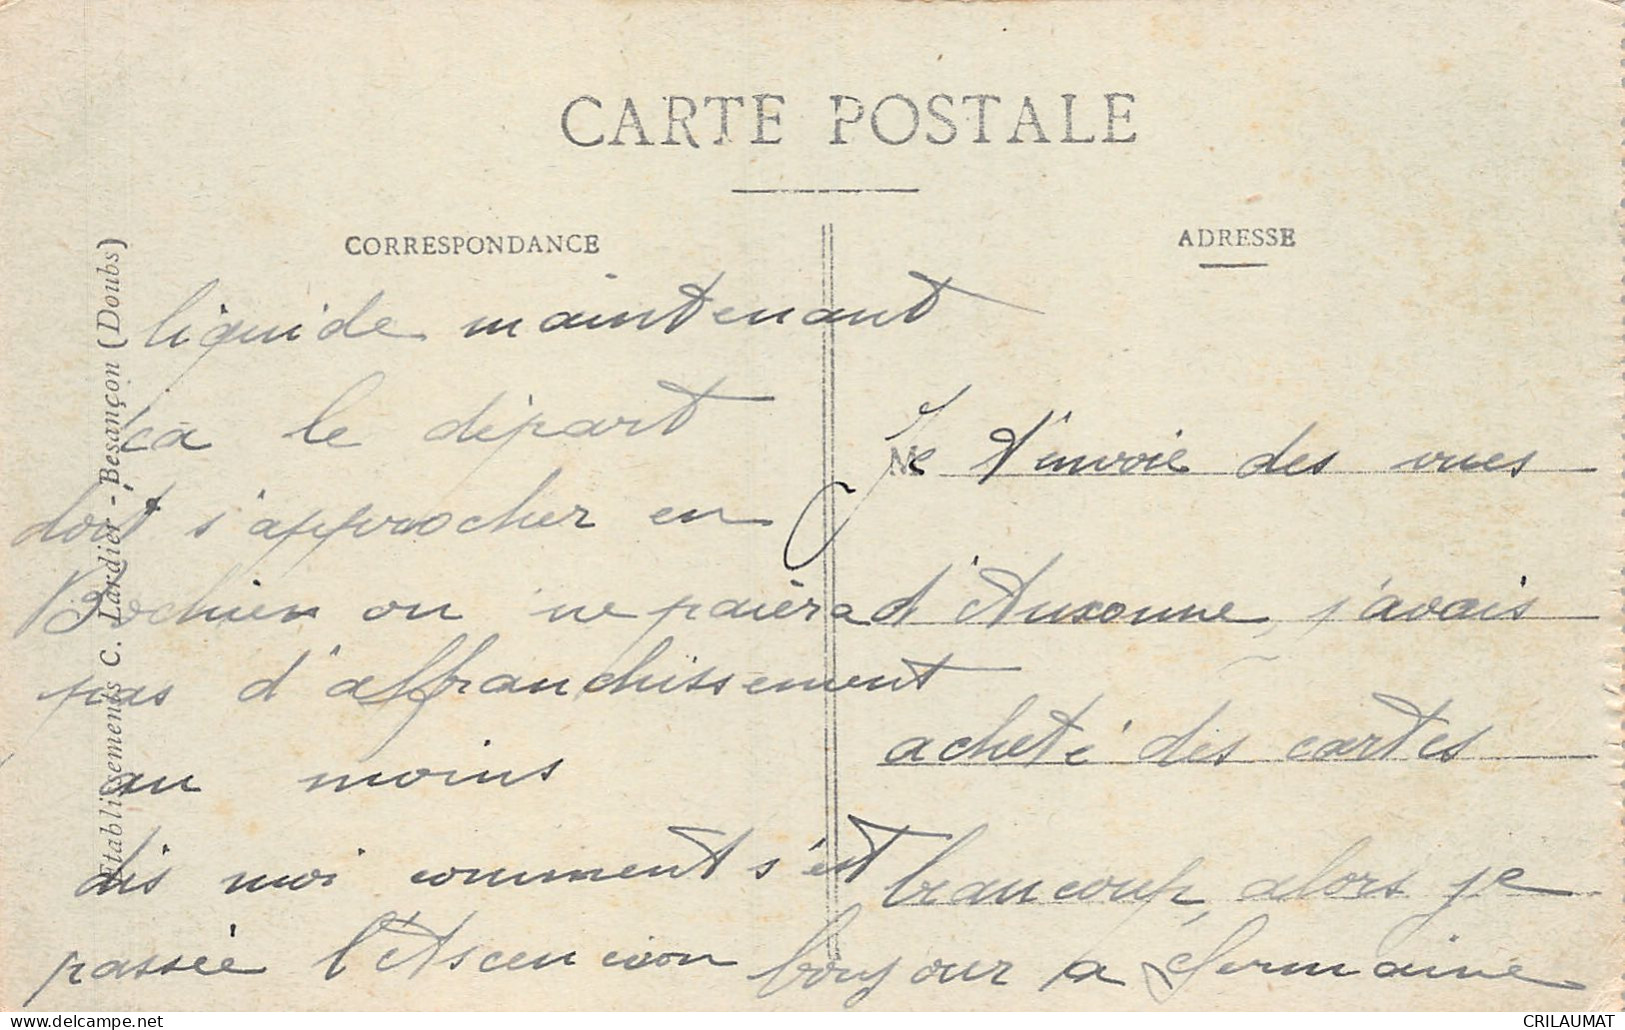 CARTE POSTALE
CORRESPONDANCE
liquide maintenant
ca le départ
doit s'approcher en
on ne paiera
pas d'affranchissement
au moins
dis moi comment s'est
passée l'Ascencion
ADRESSE
Je t'envoie des vues
d'Auxonne, j'avais
acheté des cartes
beaucoup, alors je
bonjour a Germaine
Etablissements C. Lardier - Besançon (Doubs)
CRILAUMAT